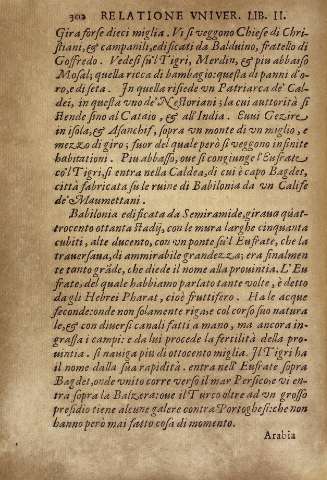 302 RELATIONE VNIVER. LIB. II.
Gira forse dieci miglia. Vi si veggono Chiese di Chri-
stiani, & campanili, edificati da Balduino, fratello di
Goffredo. Vedesi su'l Tigri, Merdin, & piu abbaßo
Mosal; quella ricca di bambagio: questa di panni d'o-
ro, e di seta. In quella risiede vn Patriarca de' Cal-
dei, in questa vno de' Nestoriani; la cui authorità si
stende sino al Cataio, & all'India. Euui Gezire
in isola, & Asanchif, sopra vn monte di vn miglio, e
mezzo di giro; fuor del quale però si veggono infinite
habitationi. Piu abbaßo, oue si congiunge l'Eufrate
co'l Tigri, si entra nella Caldea, di cui è capo Bagdet,
città fabricata su le ruine di Babilonia da vn Calife
de' Maumettani.
Babilonia edificata da Semiramide, giraua quat-
trocento ottanta stadij, con le mura larghe cinquanta
cubiti, alte ducento, con vn ponte su'l Eufrate, che la
trauersaua, di ammirabile grandezza; era finalmen
te tanto grãde, che diede il nome alla prouintia. L'Eu
frate, del quale habbiamo parlato tante volte, è detto
da gli Hebrei Pharat, cioè fruttifero. Ha le acque
feconde: onde non solamente rigate col corso suo natura
le, & con diuersi canali fatti a mano, ma ancora in-
grassa i campi: e da lui procede la fertilità della pro-
uintia. si nauiga piu di ottocento miglia. Il Tigri ha
il nome dalla sua rapidità. entra nell'Eufrate sopra
Bagdet, onde vnito corre verso il mar Persico: e vi en-
tra sopra la Balzera: oue il Turco oltre ad vn grosso
presidio tiene alcune galere contra Portoghesi: che non
hanno però mai fatto cosa di momento.
Arabia